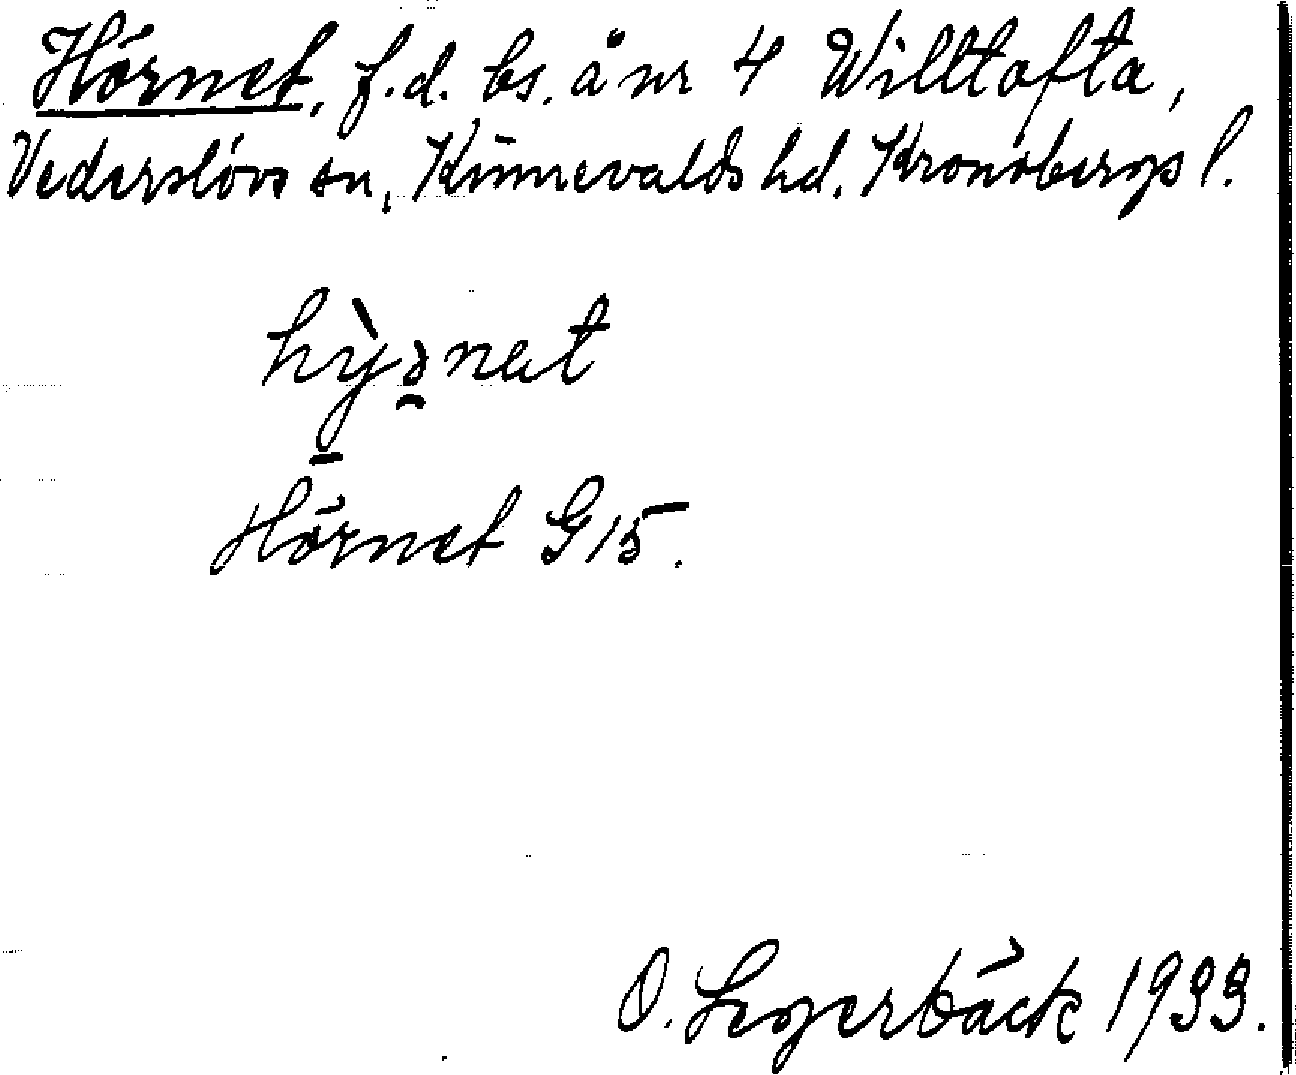 Hörnet, f.d. bs. å nr 4 Willtofta,
Vederslövs sn, Kinnevalds hd. Kronobergs l.
hỳ̠ə̯nat
Hörnet G15.
O. Segerbäck 1933.